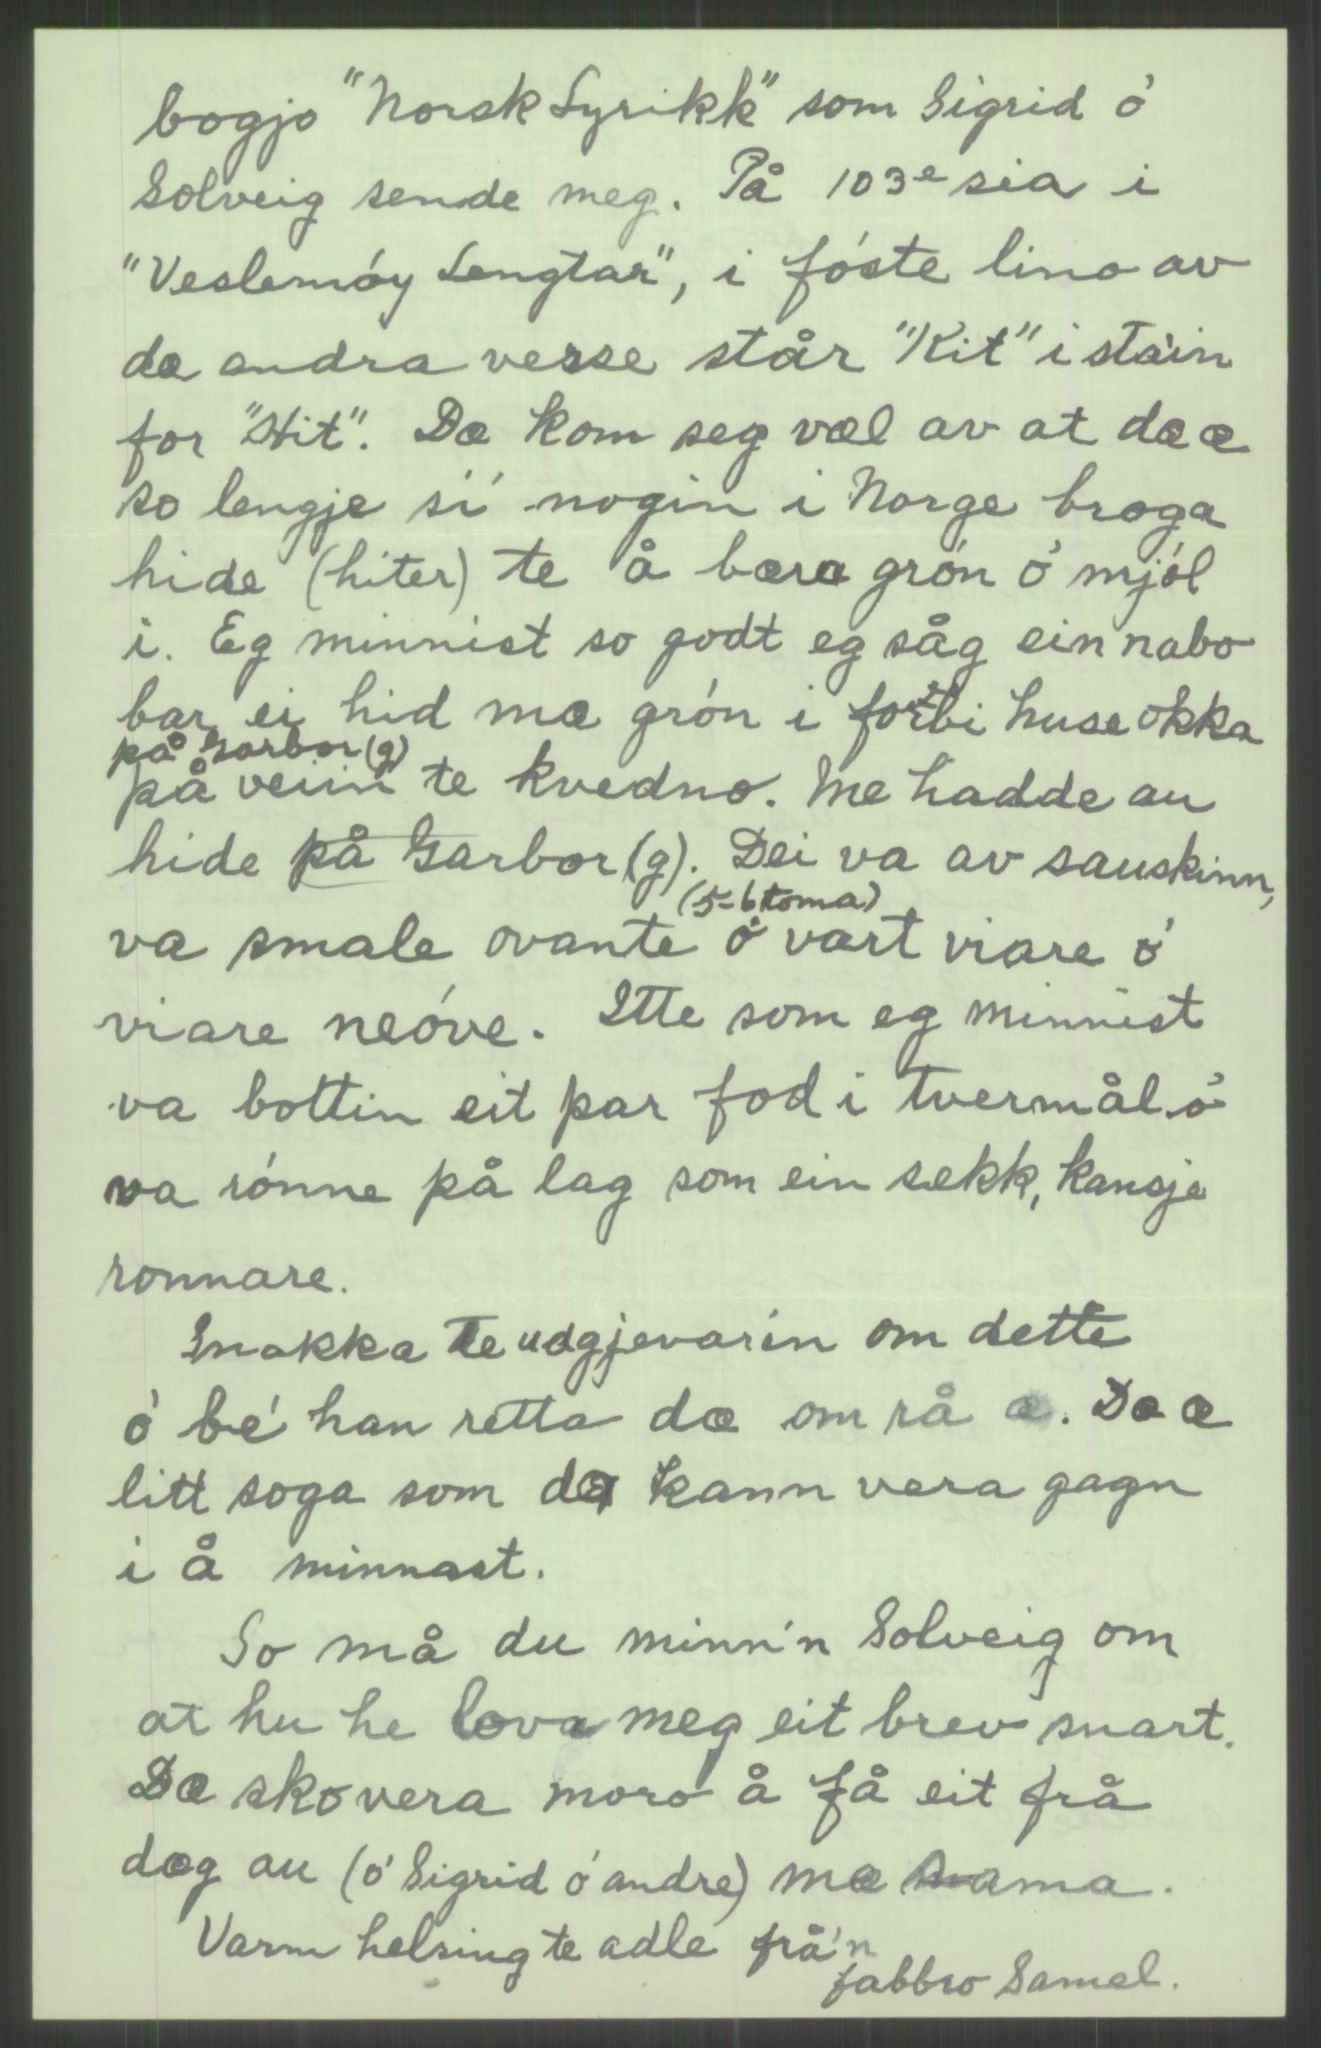 bogjo "Norsk Lyrikk" som Sigrid ó
Solveig sende meg. På 103e sia i
"Veslemóy Lengtar", i fóste lino av
dæ andra verse står "Kit" i stain
for "Hit". Dæ kom seg væl av at dæ æ
so lengje si' nogin i Norge broga
hide (hiter) te å bæra grón ó mjól
i. Eg minnist so godt eg såg ein nabo
bar ei hid mæ grón i forbi huse okka
på Garbor (g)
på veiin te kvedno. Me hadde au
hide på Garbor (g). Dei va av sauskinn,
(5-6 toma)
va smale ovante ó vart viare ó
viare neóve. Itte som eg minnist
va bottin eit par fod i tvermål ó
va rónne på lag som ein sekk, kansje
ronnare.
Snakka te udgjevarin om dette
ó bé han retta dæ om rå æ. Dæ æ
litt soga som dæ kann vera gagn
i å minnast.
So må du minn'n Solveig om
at hu he lova meg eit brev snart.
Dæ sko vera moro å få eit frå
dæg au (ó Sigrid ó andre) mæ sama.
Varm helsing te adle frå'n
fabbro Samel.